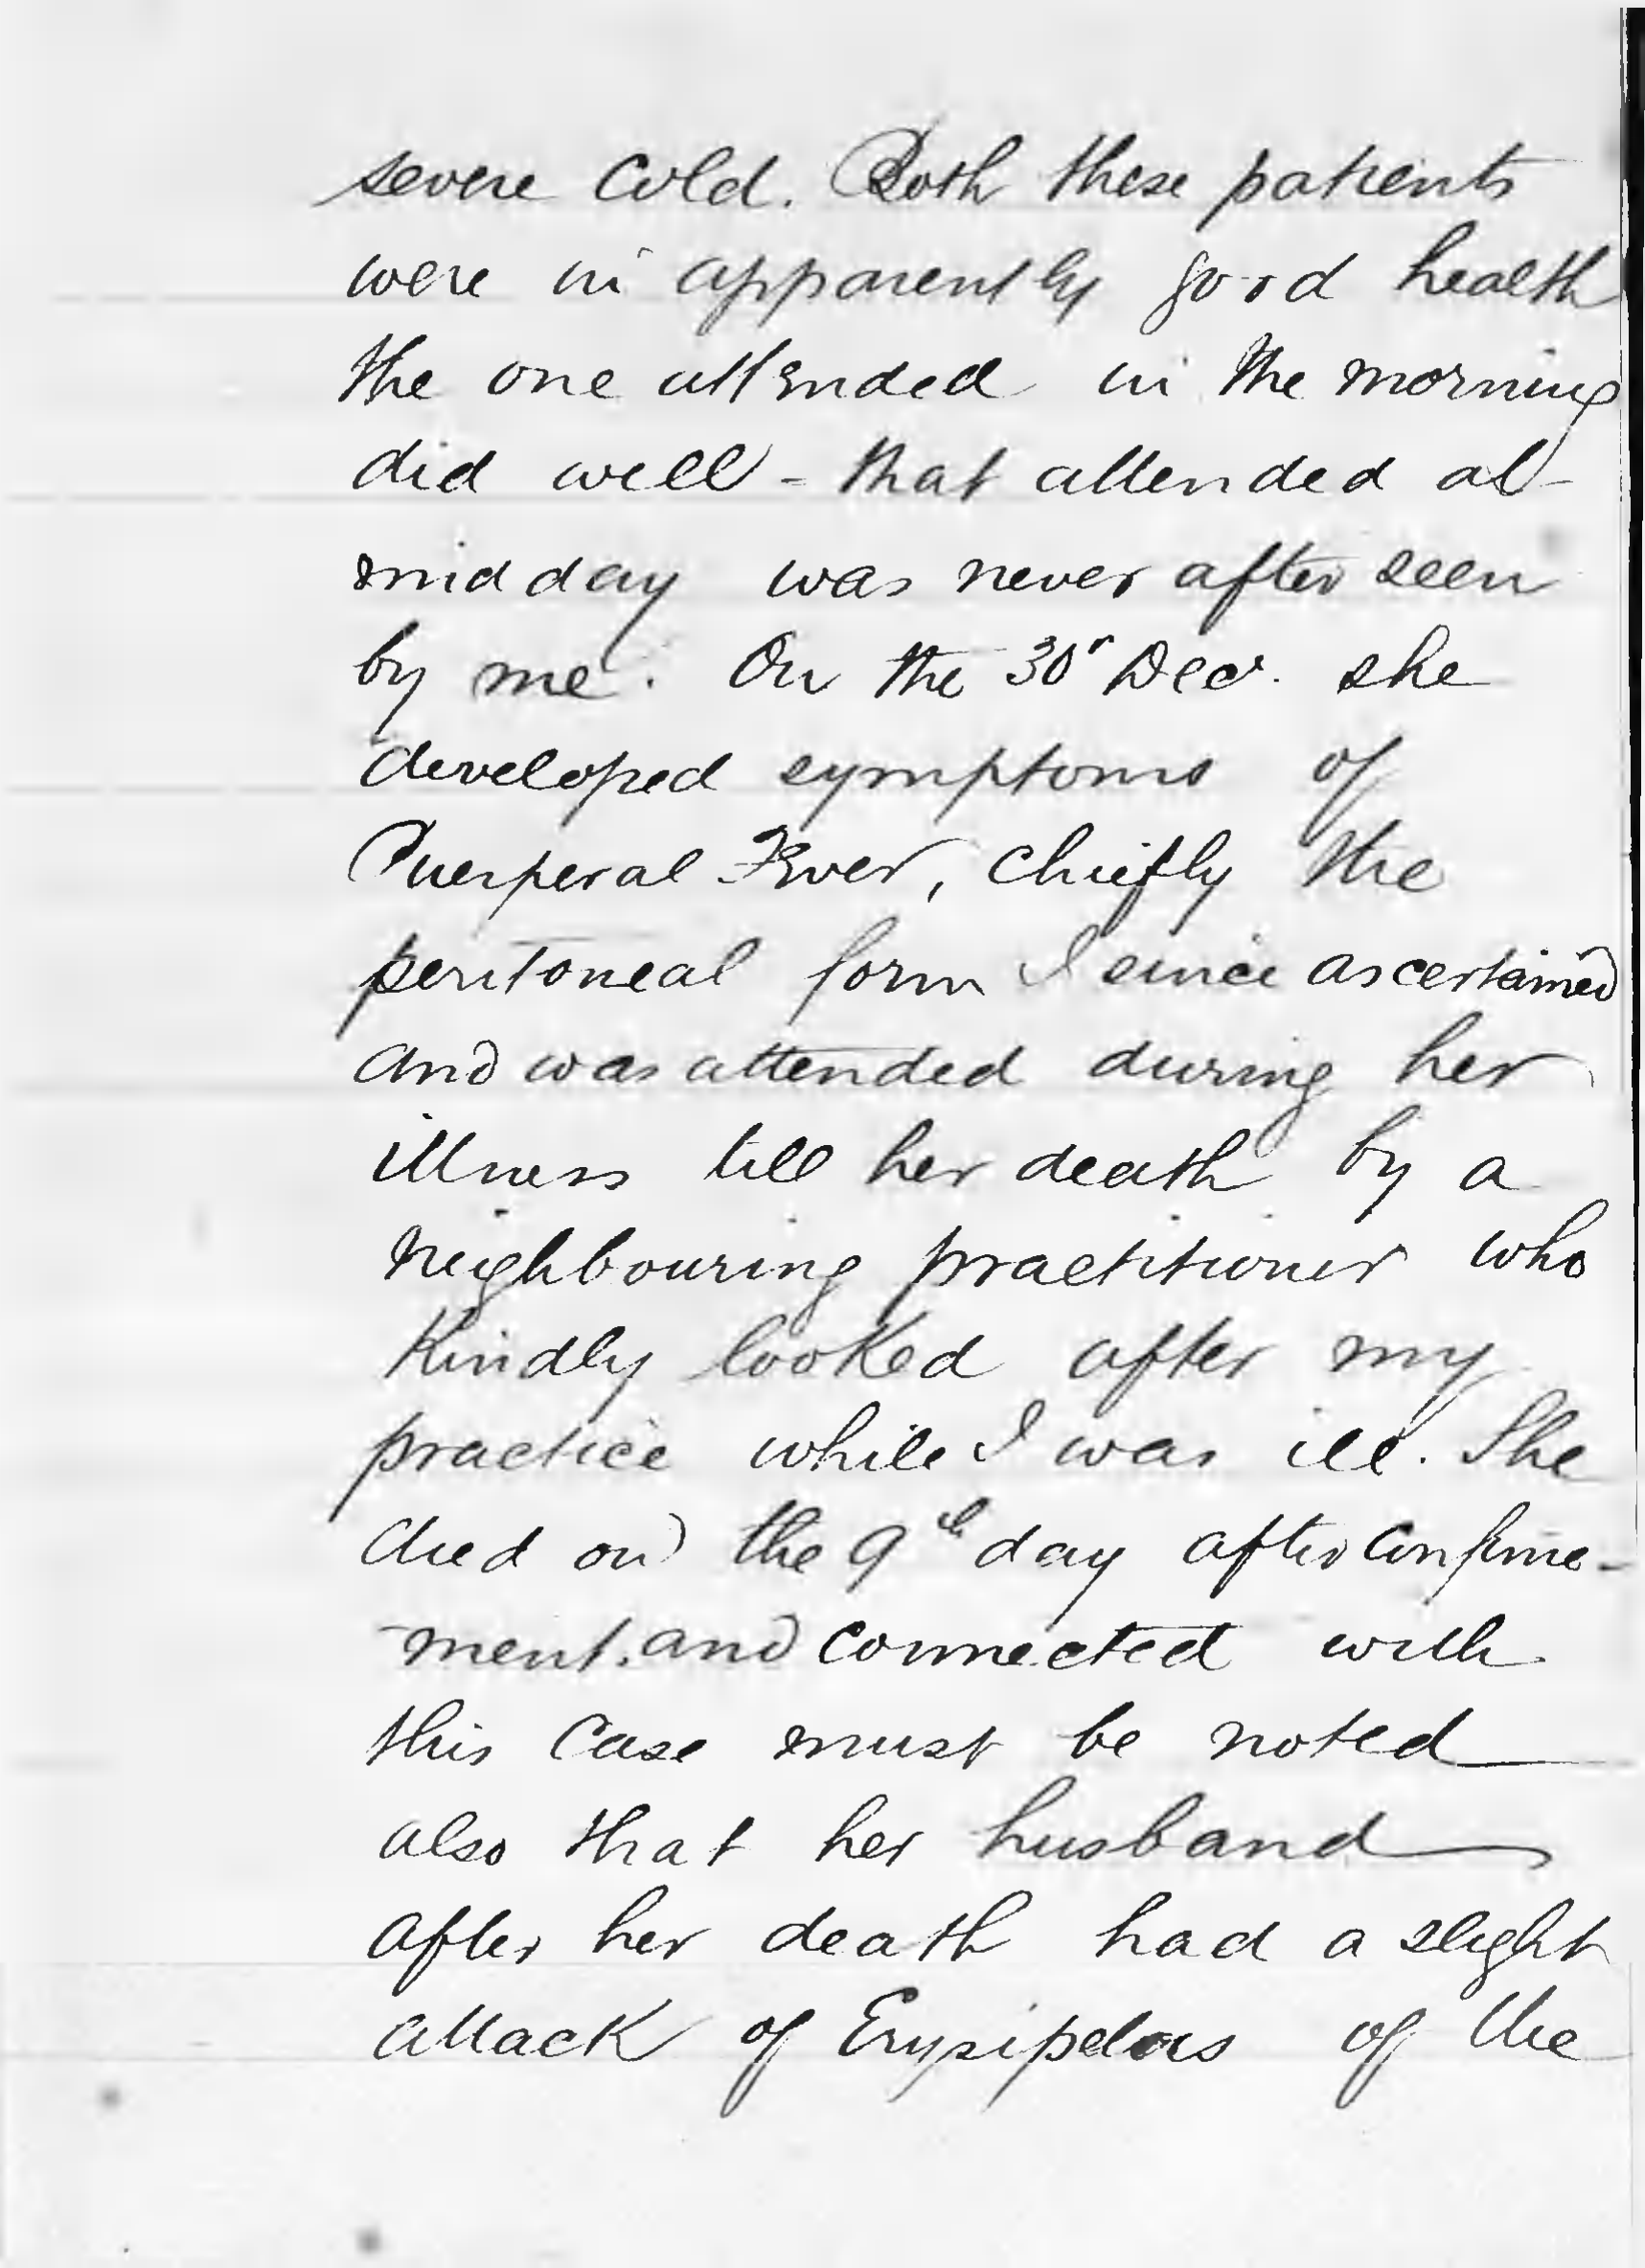 severe cold. Both these patients
were in apparently good health
the one attended in the morning
did well - that attended at
mid day was never after seen
by me. On the 30" Dec. she
developed symptoms of
Puerperal Fever, chiefly the
peritoneal form I since ascertained
and was attended during her
illness till her death by a
neighbouring practitioner who
kindly looked after my
practice while I was ill. She
died on the 9th day after confine-
-ment. and connected with
this case must be noted
also that her husband
after her death had a slight
attack of Erysipelas of the